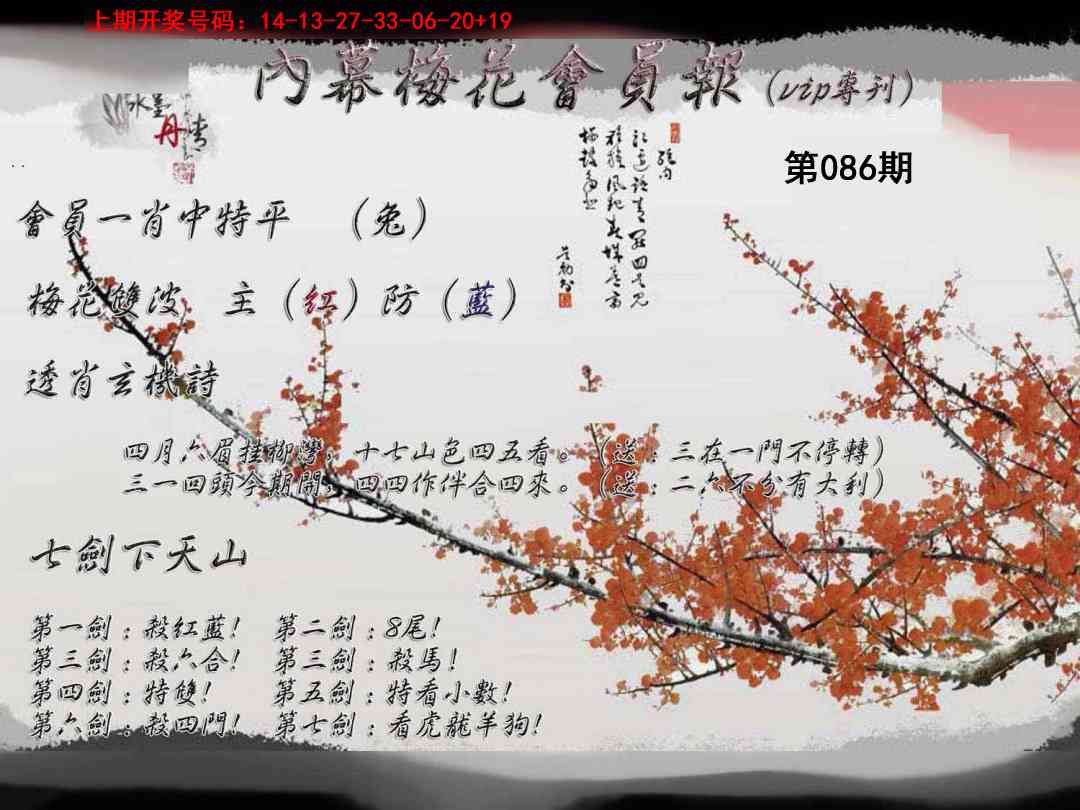 上期开奖号码：14-13-27-33-06-20+19
內幕梅花會員報（vip專刊）
水墨
丹青
第086期
會員一肖中特平　（兔）
梅花雙波　主（紅）防（藍）
透肖玄機詩
四月六眉挂柳灣，十七山色四五看。（送：三在一門不停轉）
三一四頭今期開，四四作伴合四來。（送：二六不分有大利）
七劍下天山
第一劍：殺紅藍！　第二劍：8尾！
第三劍：殺六合！　第三劍：殺馬！
第四劍：特雙！　第五劍：特看小數！
第六劍：殺四門！　第七劍：看虎龍羊狗！